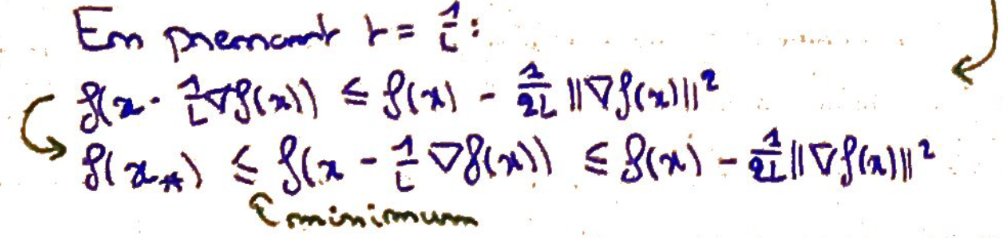 En prenant t = 1/L :
f(x - 1/L ∇f(x)) ≤ f(x) - 1/2L ||∇f(x)||²
f(x*) ≤ f(x - 1/L ∇f(x)) ≤ f(x) - 1/2L ||∇f(x)||²
minimum